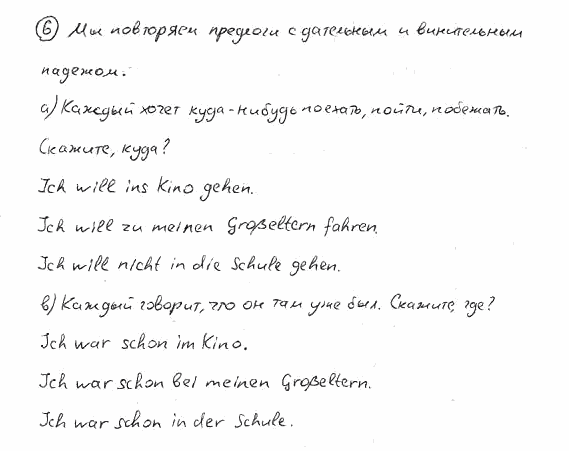 ⑥ Мы повторяем предлоги с дательным и винительным
падежом.
а) Каждый хочет куда-нибудь поехать, пойти, побежать.
Скажите, куда?
Ich will ins Kino gehen.
Ich will zu meinen Großeltern fahren.
Ich will nicht in die Schule gehen.
в) Каждый говорит, что он там уже был. Скажите, где?
Ich war schon im Kino.
Ich war schon bei meinen Großeltern.
Ich war schon in der Schule.